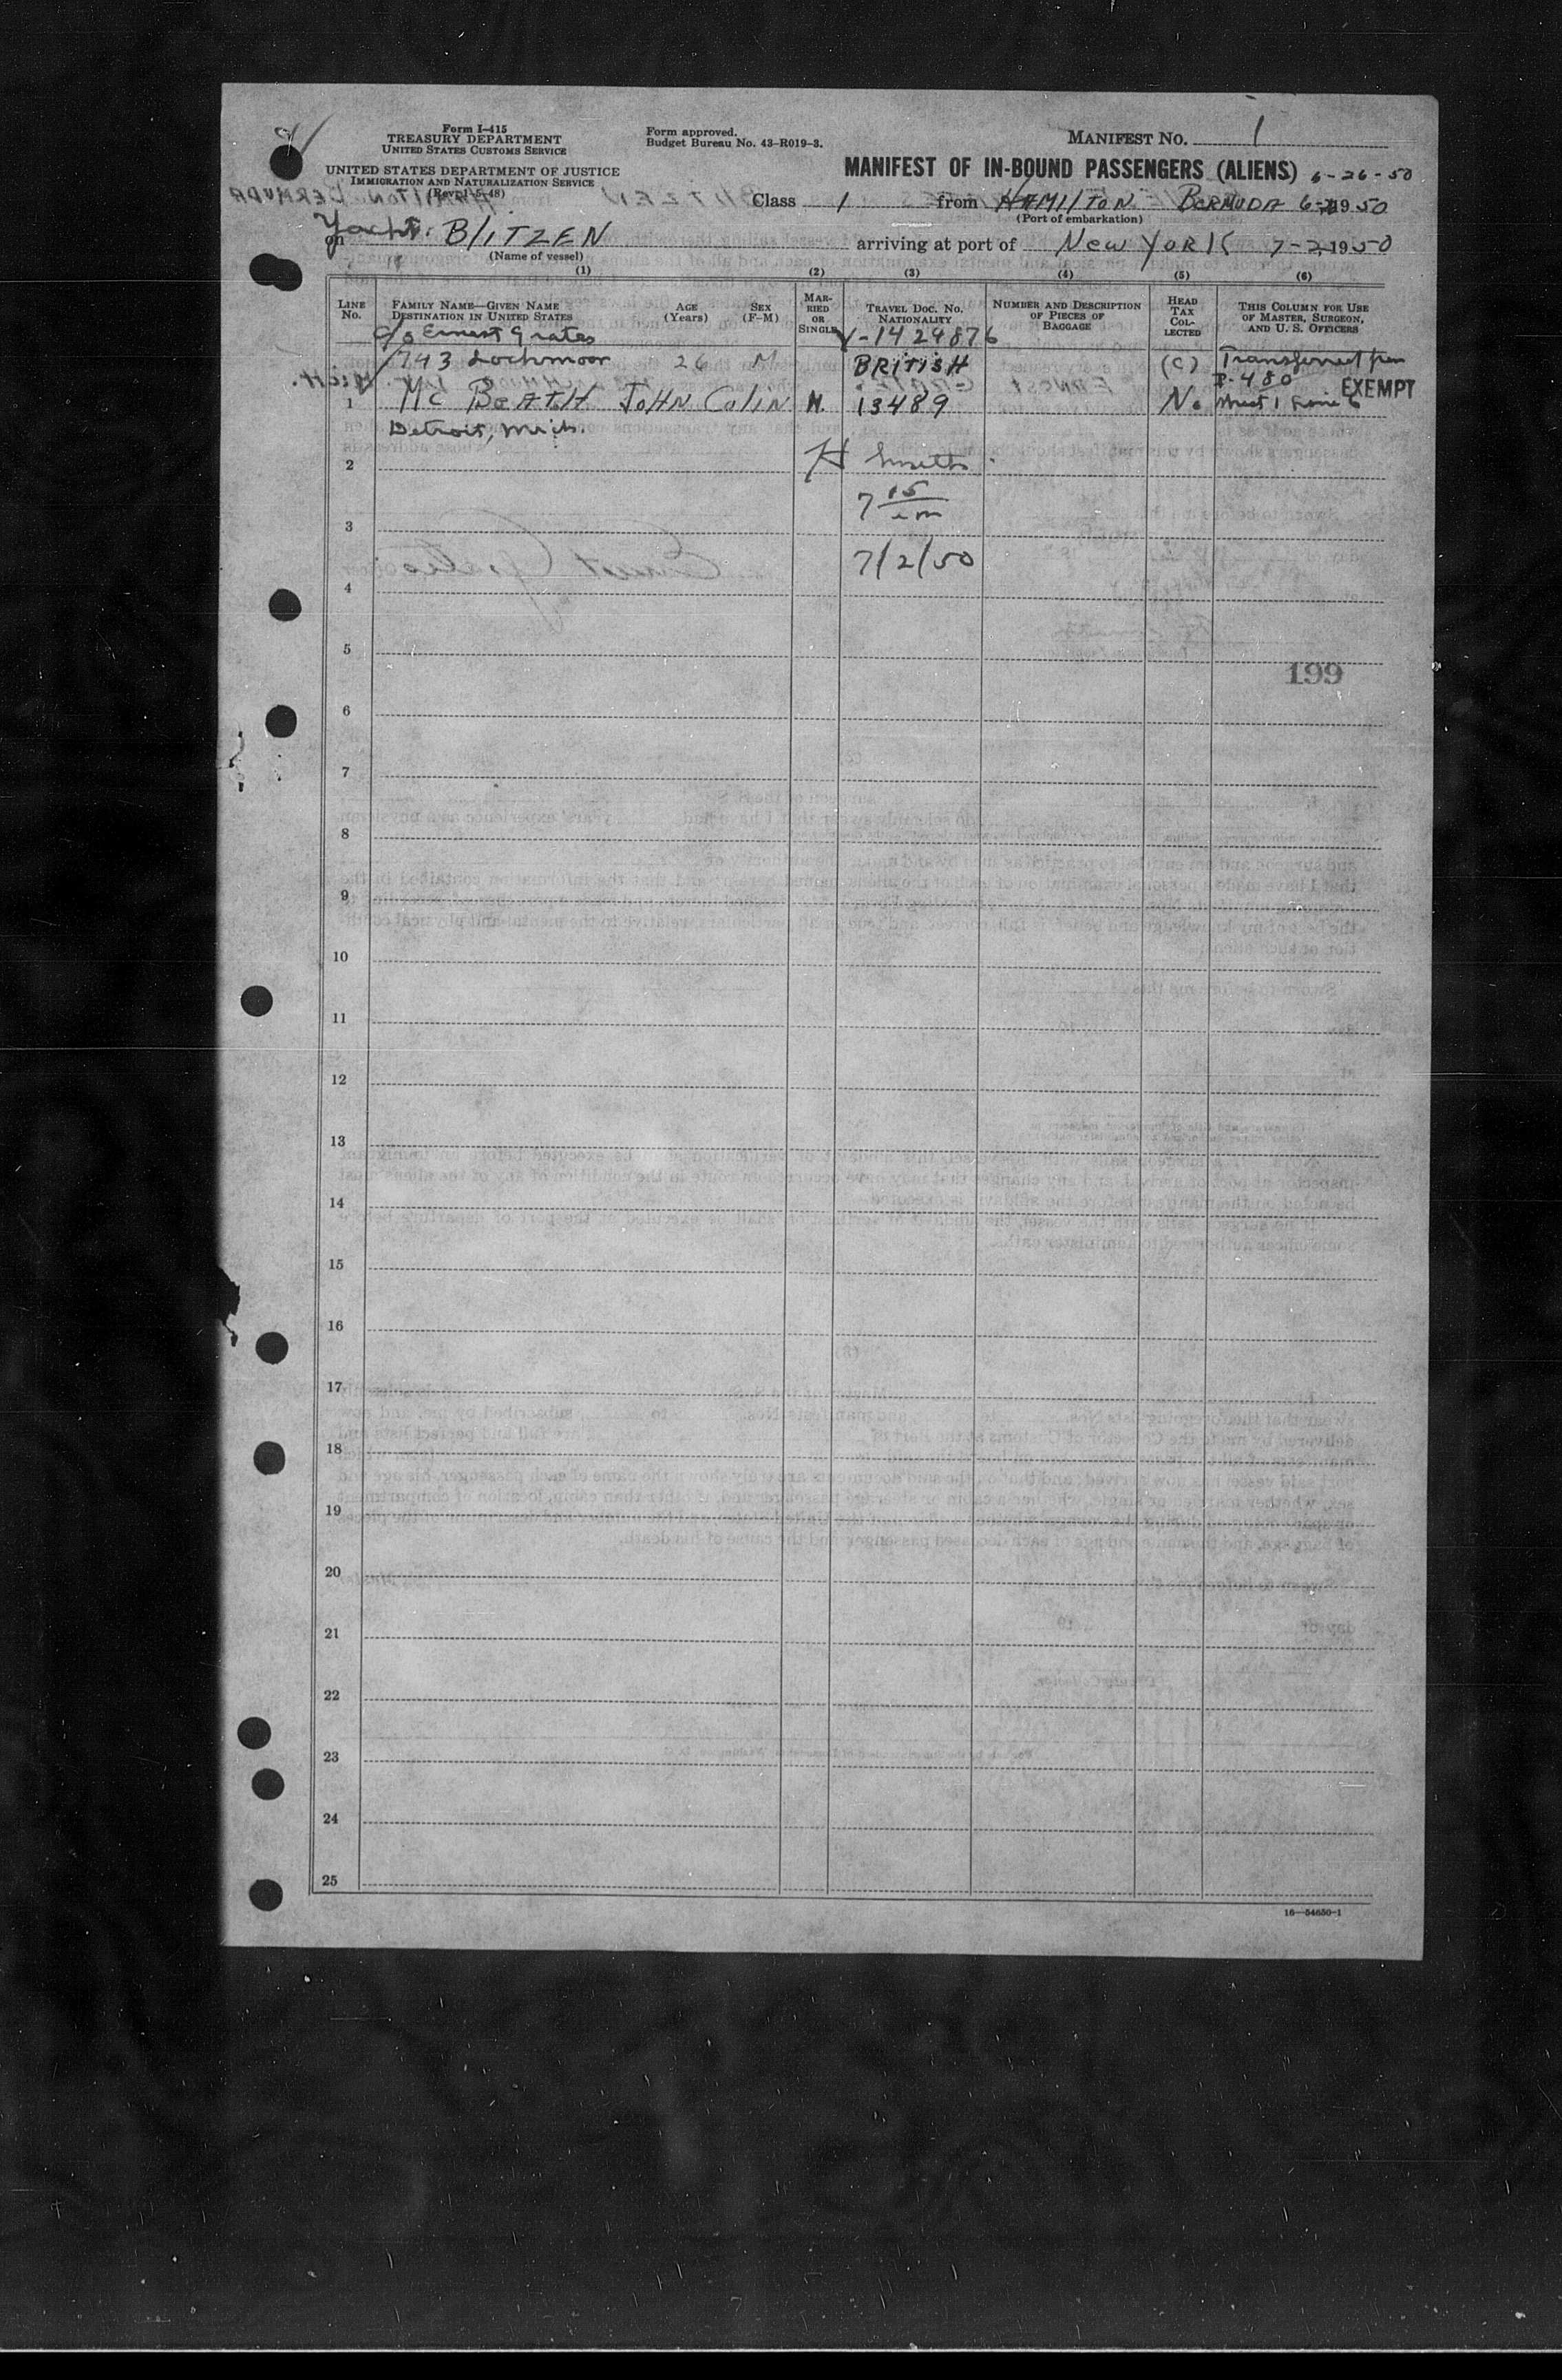 Form I-415
TREASURY DEPARTMENT
UNITED STATES CUSTOMS SERVICE
UNITED STATES DEPARTMENT OF JUSTICE
IMMIGRATION AND NATURALIZATION SERVICE
(Rev. 1-5-48)
Form approved.
Budget Bureau No. 43-R019-3.
MANIFEST NO. 1
MANIFEST OF IN-BOUND PASSENGERS (ALIENS) 6-26-50
Class 1 from HAMILTON BERMUDA 1950
(Port of embarkation)
Yacht
on BLITZEN arriving at port of NEW YORK 7-2, 1950
(Name of vessel)
(1) (2) (3) (4) (5) (6)
LINE No.
FAMILY NAME—GIVEN NAME
DESTINATION IN UNITED STATES
AGE (Years)
SEX (F-M)
MARRIED OR SINGLE
TRAVEL DOC. NO.
NATIONALITY
NUMBER AND DESCRIPTION OF PIECES OF BAGGAGE
HEAD TAX COLLECTED
THIS COLUMN FOR USE OF MASTER, SURGEON, AND U. S. OFFICERS
c/o Ernest Grates V-1424876
743 Lochmoor 26 M BRITISH (C) Transferred from
P-480 EXEMPT
1 Mc BEATH JOHN Colin M. 13489 No Sheet 1 Line 6
Detroit, Mich.
2 H Smith
7 15
3
7/2/50
4
5
199
6
7
8
9
10
11
12
13
14
15
16
17
18
19
20
21
22
23
24
25
16—54650-1